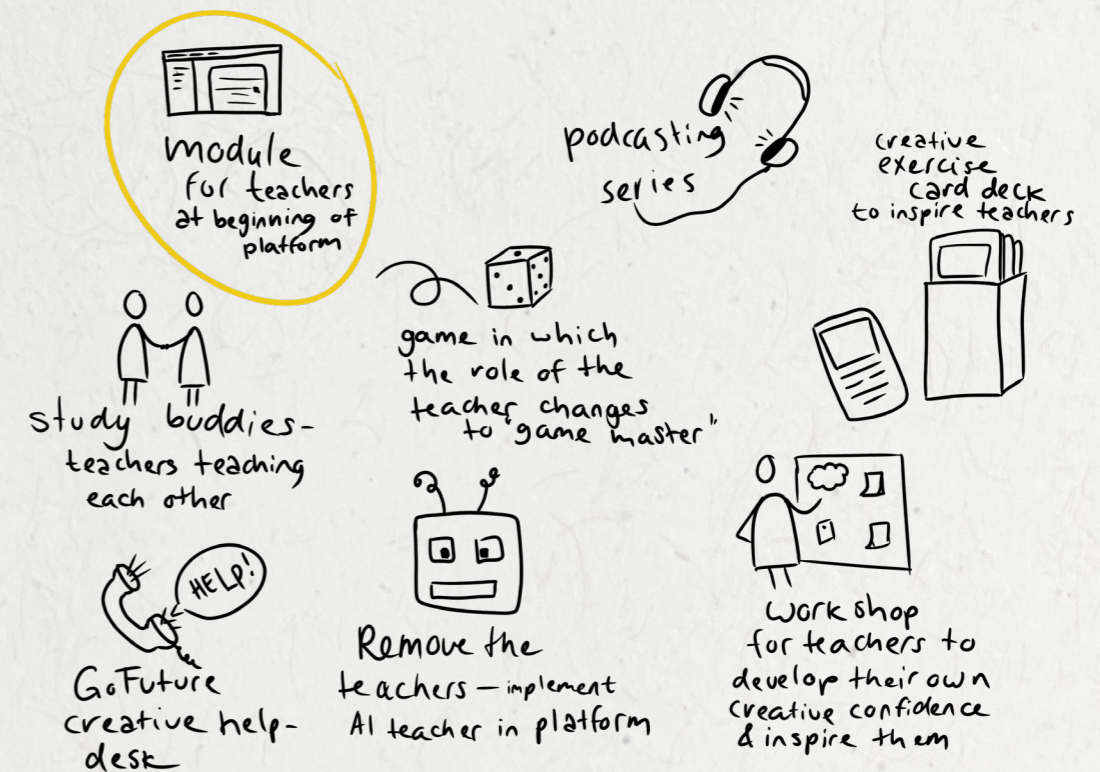 module
for teachers
at beginning of
platform
podcasting
series
creative
exercise
card deck
to inspire teachers
study buddies-
teachers teaching
each other
game in which
the role of the
teacher changes
to "game master"
HELP!
GoFuture
creative help-
desk
Remove the
teachers – implement
AI teacher in platform
workshop
for teachers to
develop their own
creative confidence
& inspire them